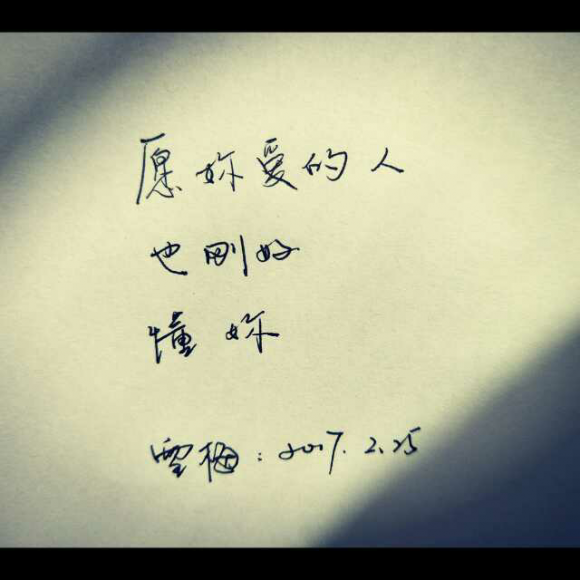 愿妳爱的人
也刚好
懂妳
雪梅：2017.2.25